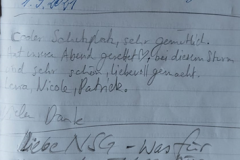 Cooler Schutzplatz, sehr gemütlich.
Hat unseren Abend gerettet ♡, bei diesem Sturm
und sehr schön, liebevoll gemacht.
Nicole, Patrick.
Vielen Dank
Liebe NSG - Was für